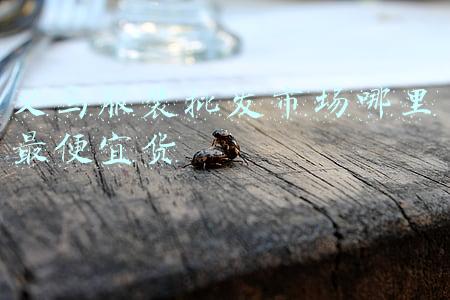 义乌服装批发市场哪里
最便宜货